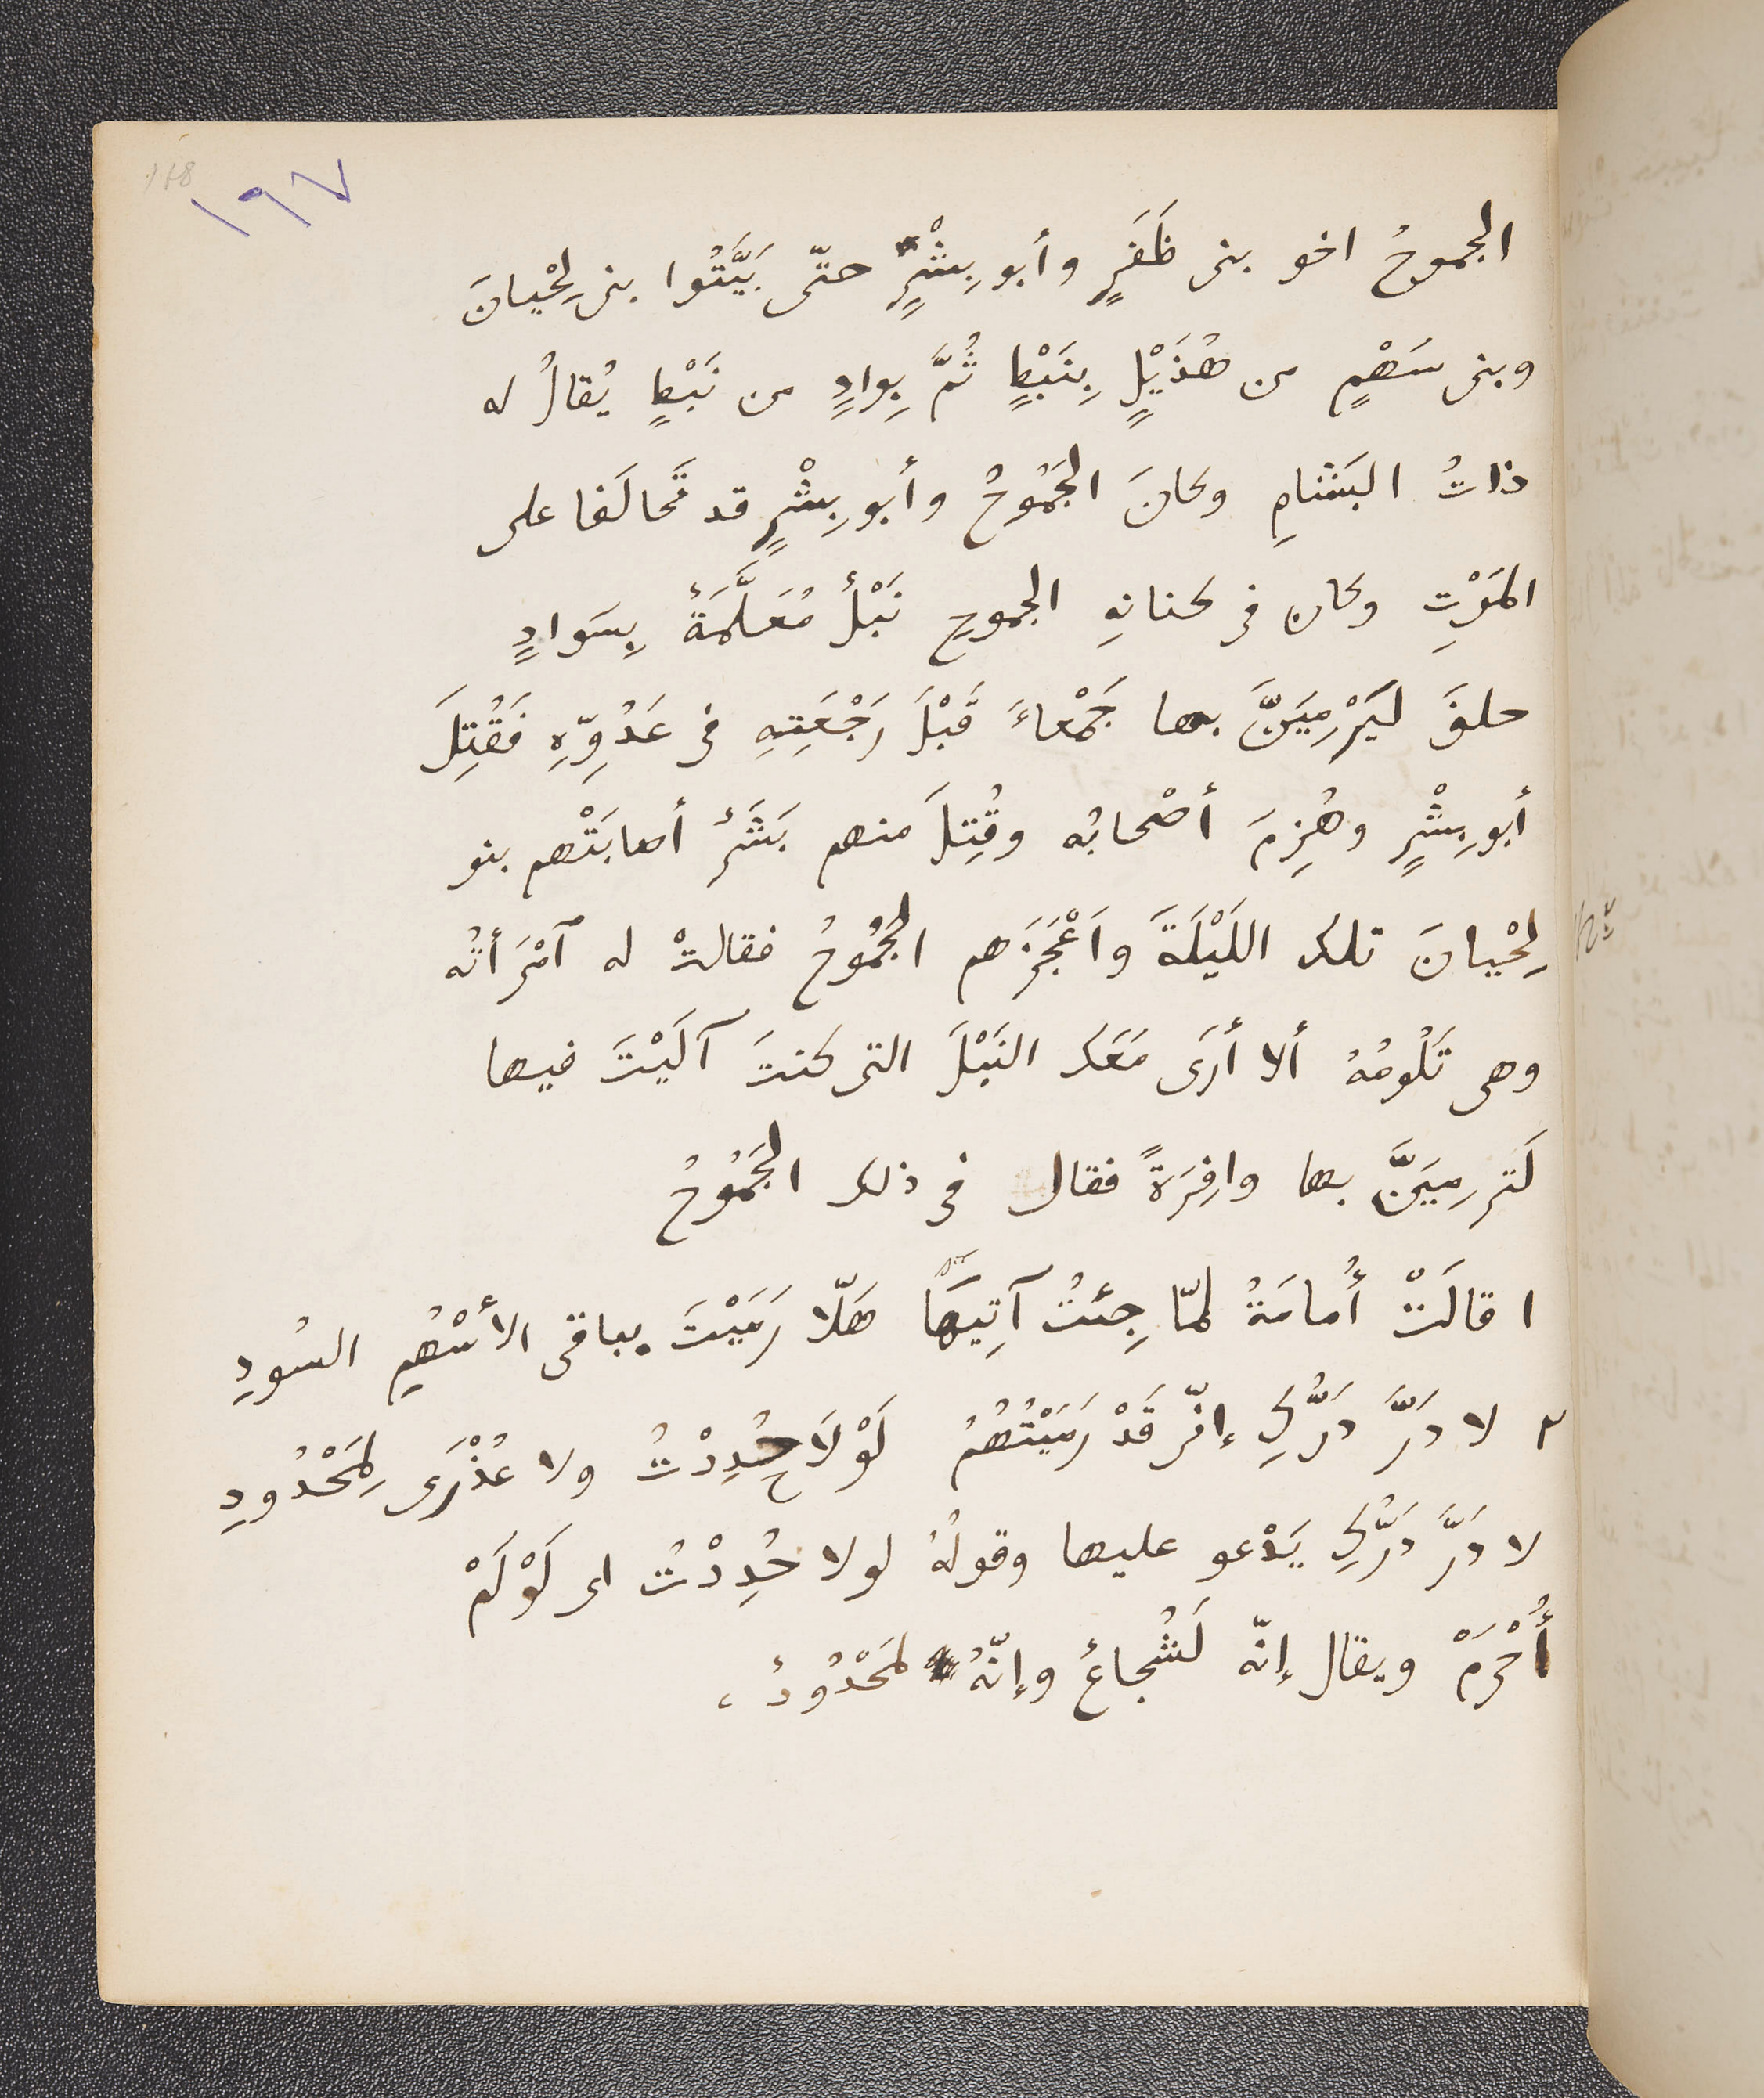 ١٩٧
178
الجموحُ اخو بنى ظَفَرٍ وأبو بِشْرٍ حتّى بَيَّتُوا بنى لِحْيانَ
وبنى سَهْمٍ من هُذَيْلٍ بِنَبْطٍ ثُمَّ بِوادٍ من نَبْطٍ يُقالُ له
ذاتُ البَشامِ وكانَ الجَمُوحُ وأبو بِشْرٍ قد تَحالَفا على
المَوْتِ وكان فى كنانهِ الجموحِ نَبْلٌ مُعَلَّمَةٌ بِسَوادٍ
حلفَ لَيَرْمِيَنَّ بها جَمْعاءَ قَبْلَ رَجْعَتِهِ فى عَدُوِّهِ فَقُتِلَ
أبو بِشْرٍ وهُزِمَ أصْحابُه وقُتِلَ منهم بَشَرٌ أصابَتْهم بنو
لِحْيانَ تلك اللَيْلَةَ وَأَعْجَزَهم الجَمُوحُ فقالتْ له ٱمْرَأتُه
وهى تَلُومُهُ ألا أرَى مَعَك النَبْلَ التى كنتَ آلَيْتَ فيها
لَتَرمِيَنَّ بها وافِرَةً فقال فى ذلك الجَمُوحُ
١ قالَتْ أُمامَةُ لمّا جِئتُ آتِيهَا هَلّا رَمَيْتَ بباقى الأسْهُمِ السُودِ
٢ لا دَرَّ دَرُّكِ إنّى قَدْ رَمَيْتُهُمُ لَوْلَا حُدِدْتُ ولا عُذْرَى لِمَحْدُودِ
لا دَرَّ دَرُّكِ يَدْعو عليها وقولُهُ لولا حُدِدْتُ اى لَوْ لَمْ
أُحْرَمْ ويقال إنّه لَشُجاعٌ وإنّهُ لمَحْدُودٌ،